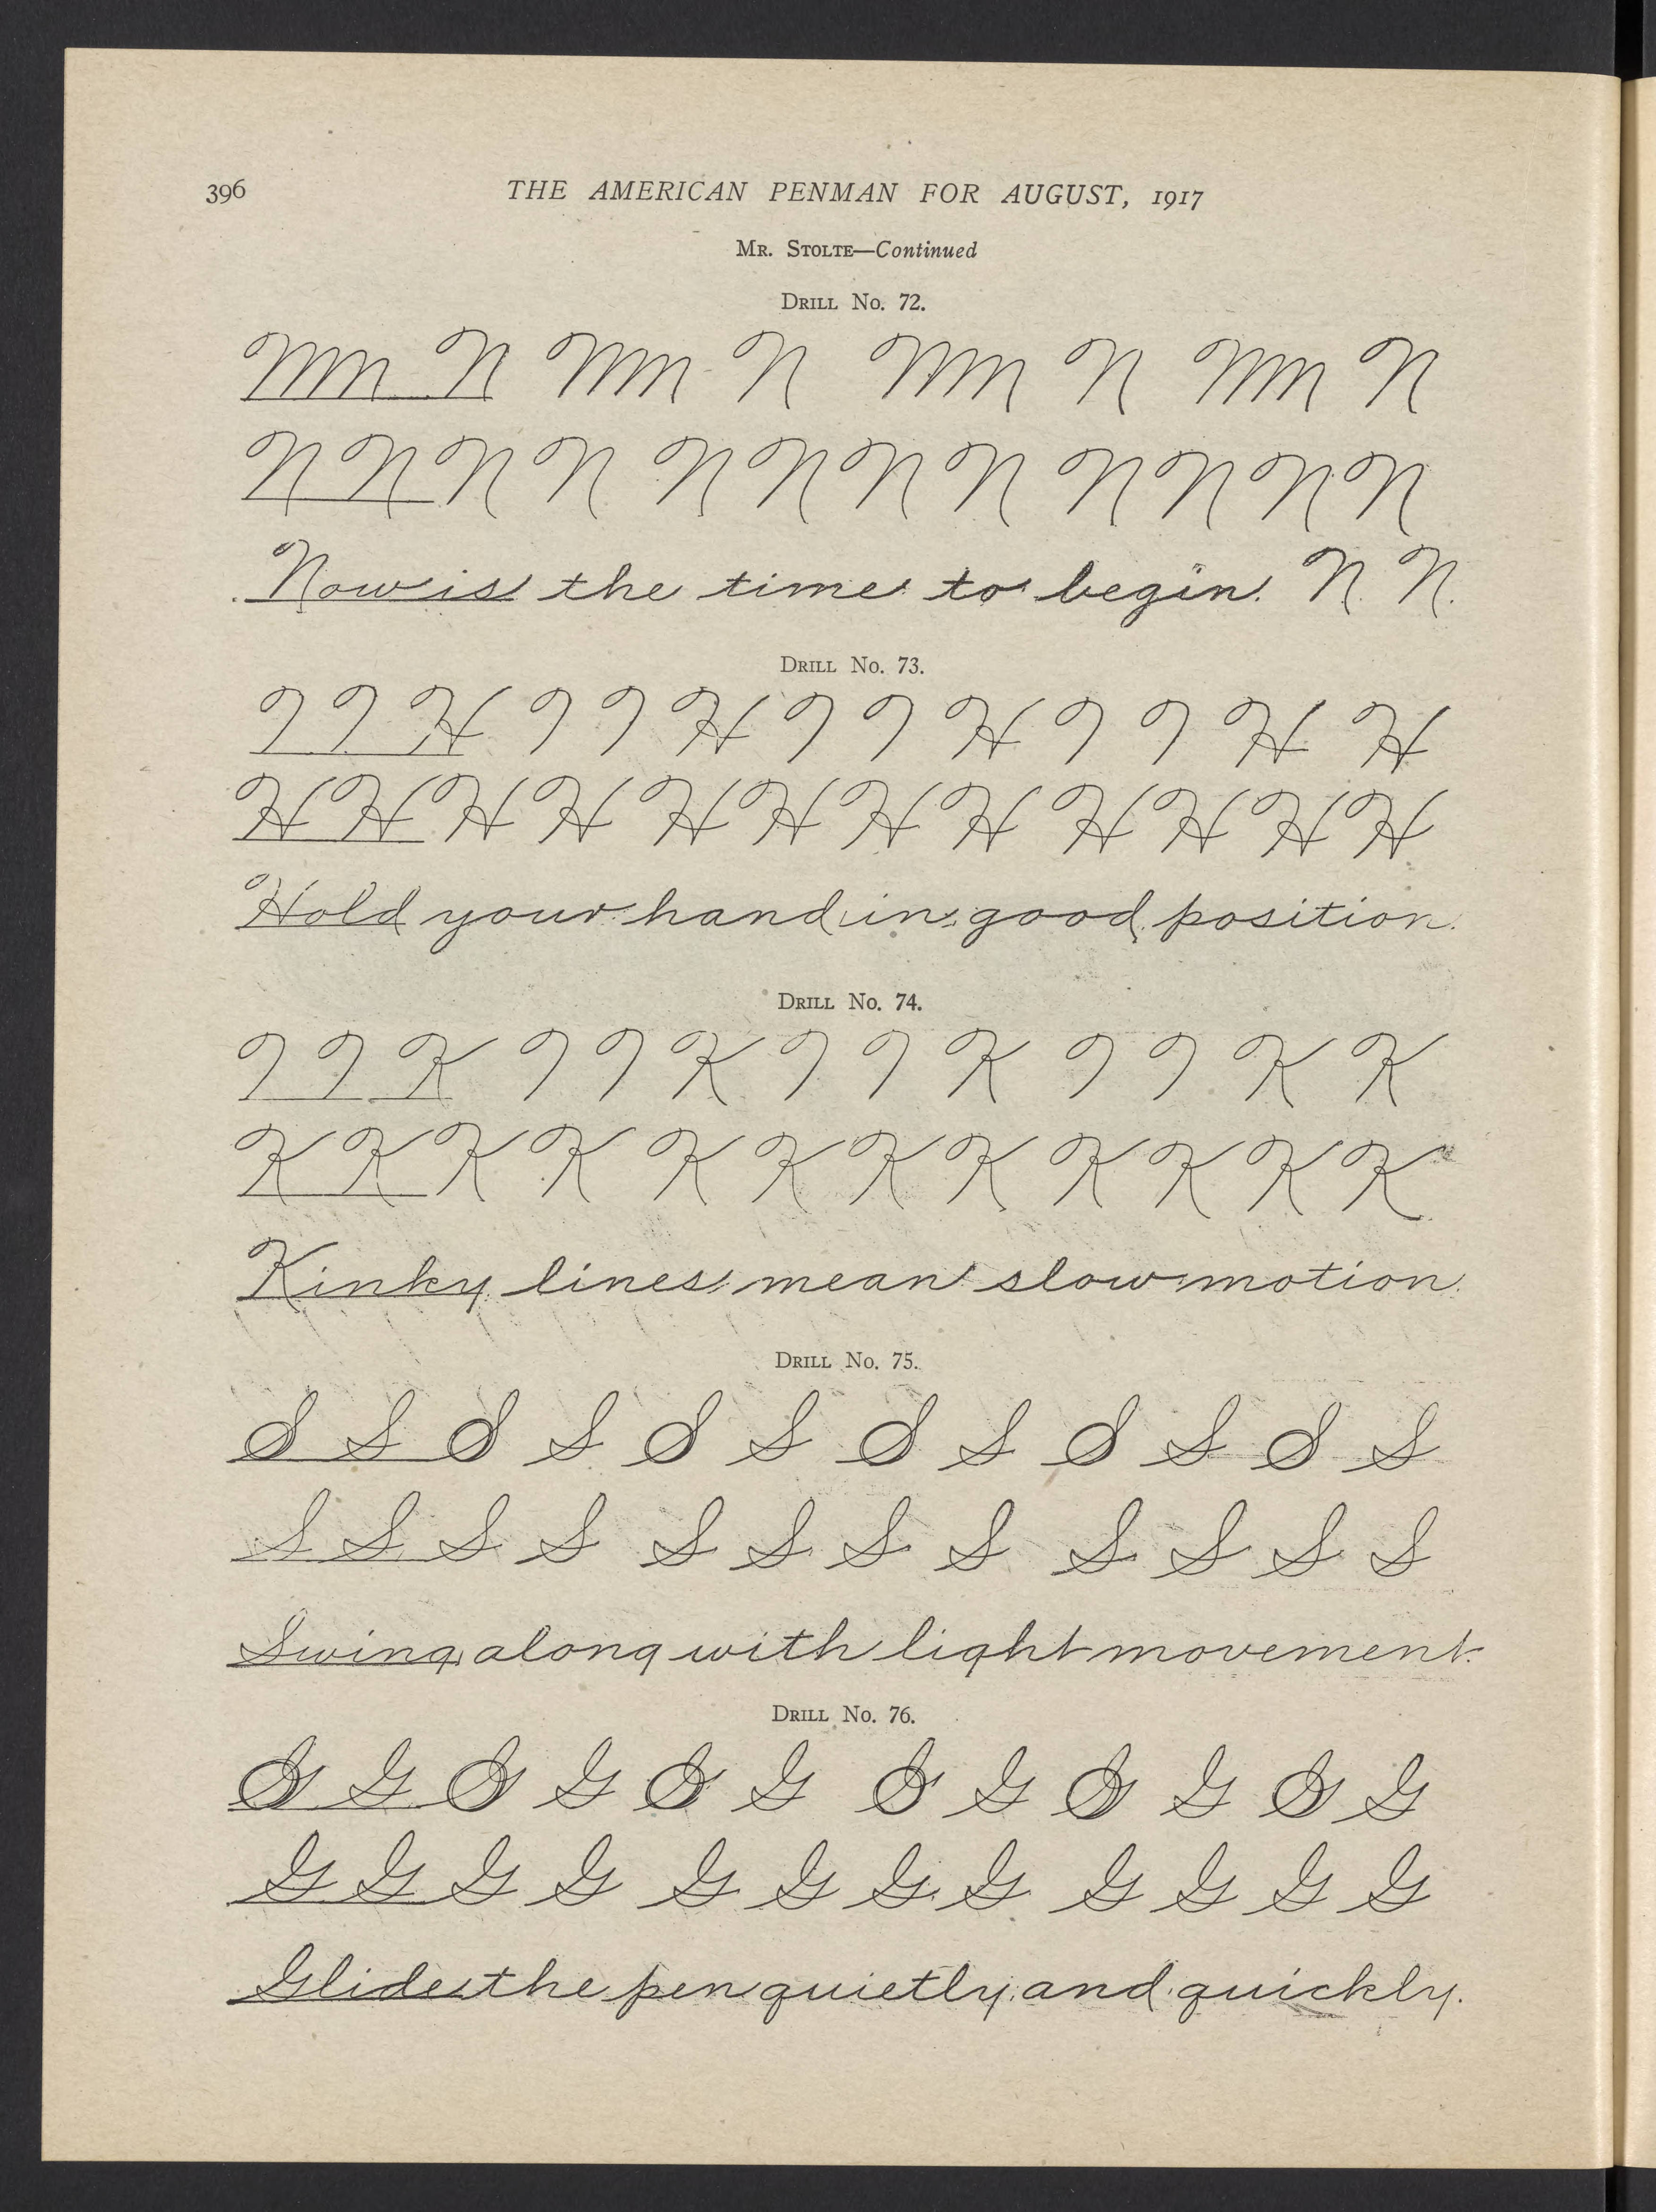 396 THE AMERICAN PENMAN FOR AUGUST, 1917
Mr. Stolte—Continued
Drill No. 72.
Mm N Mm N Mm N Mm N
N N N N N N N N N N N N
Now is the time to begin. N. N.
Drill No. 73.
H H H H H
H H H H H H H H H H H H
Hold your hand in good position.
Drill No. 74.
K K K K K
K K K K K K K K K K K K
Kinky lines mean slow motion.
Drill No. 75.
S S S S S S S S S S S S
S S S S S S S S S S S S
Swing along with light movement.
Drill No. 76.
G G G G G G G G G G G G
G G G G G G G G G G G G
Glide the pen quietly and quickly.